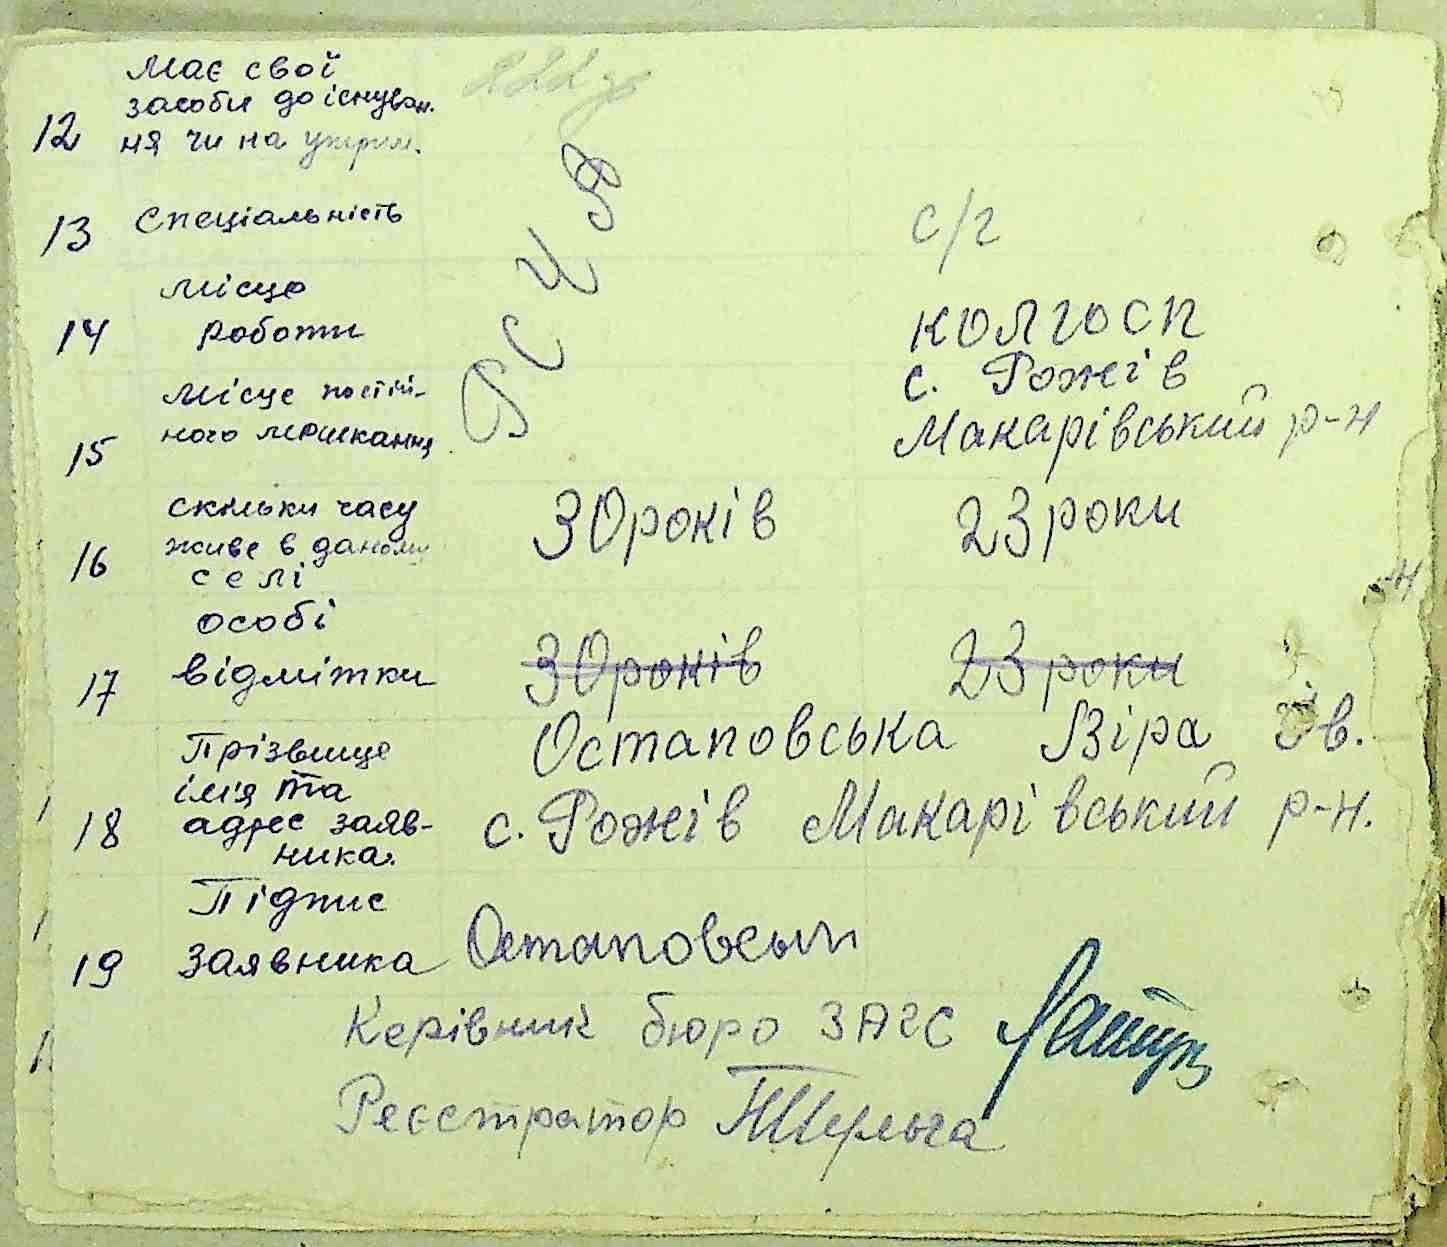 Має свої
засоби до існуван.
12 ня чи на утрим.
13 Спеціальність с/г
Місце
14 роботи колгосп
с. Рожів
15 Місце постій-
ного мешкання Макарівський р-н
скільки часу 30 років 23 роки
16 живе в даному
селі
особі
17 відмітки 30 років 23 роки
Прізвище Остаповська Віра Ів.
ім'я та
18 адрес заяв- с. Рожів Макарівський р-н.
ника.
Підпис
19 заявника Остаповськ
Керівник бюро ЗАГС
Реєстратор